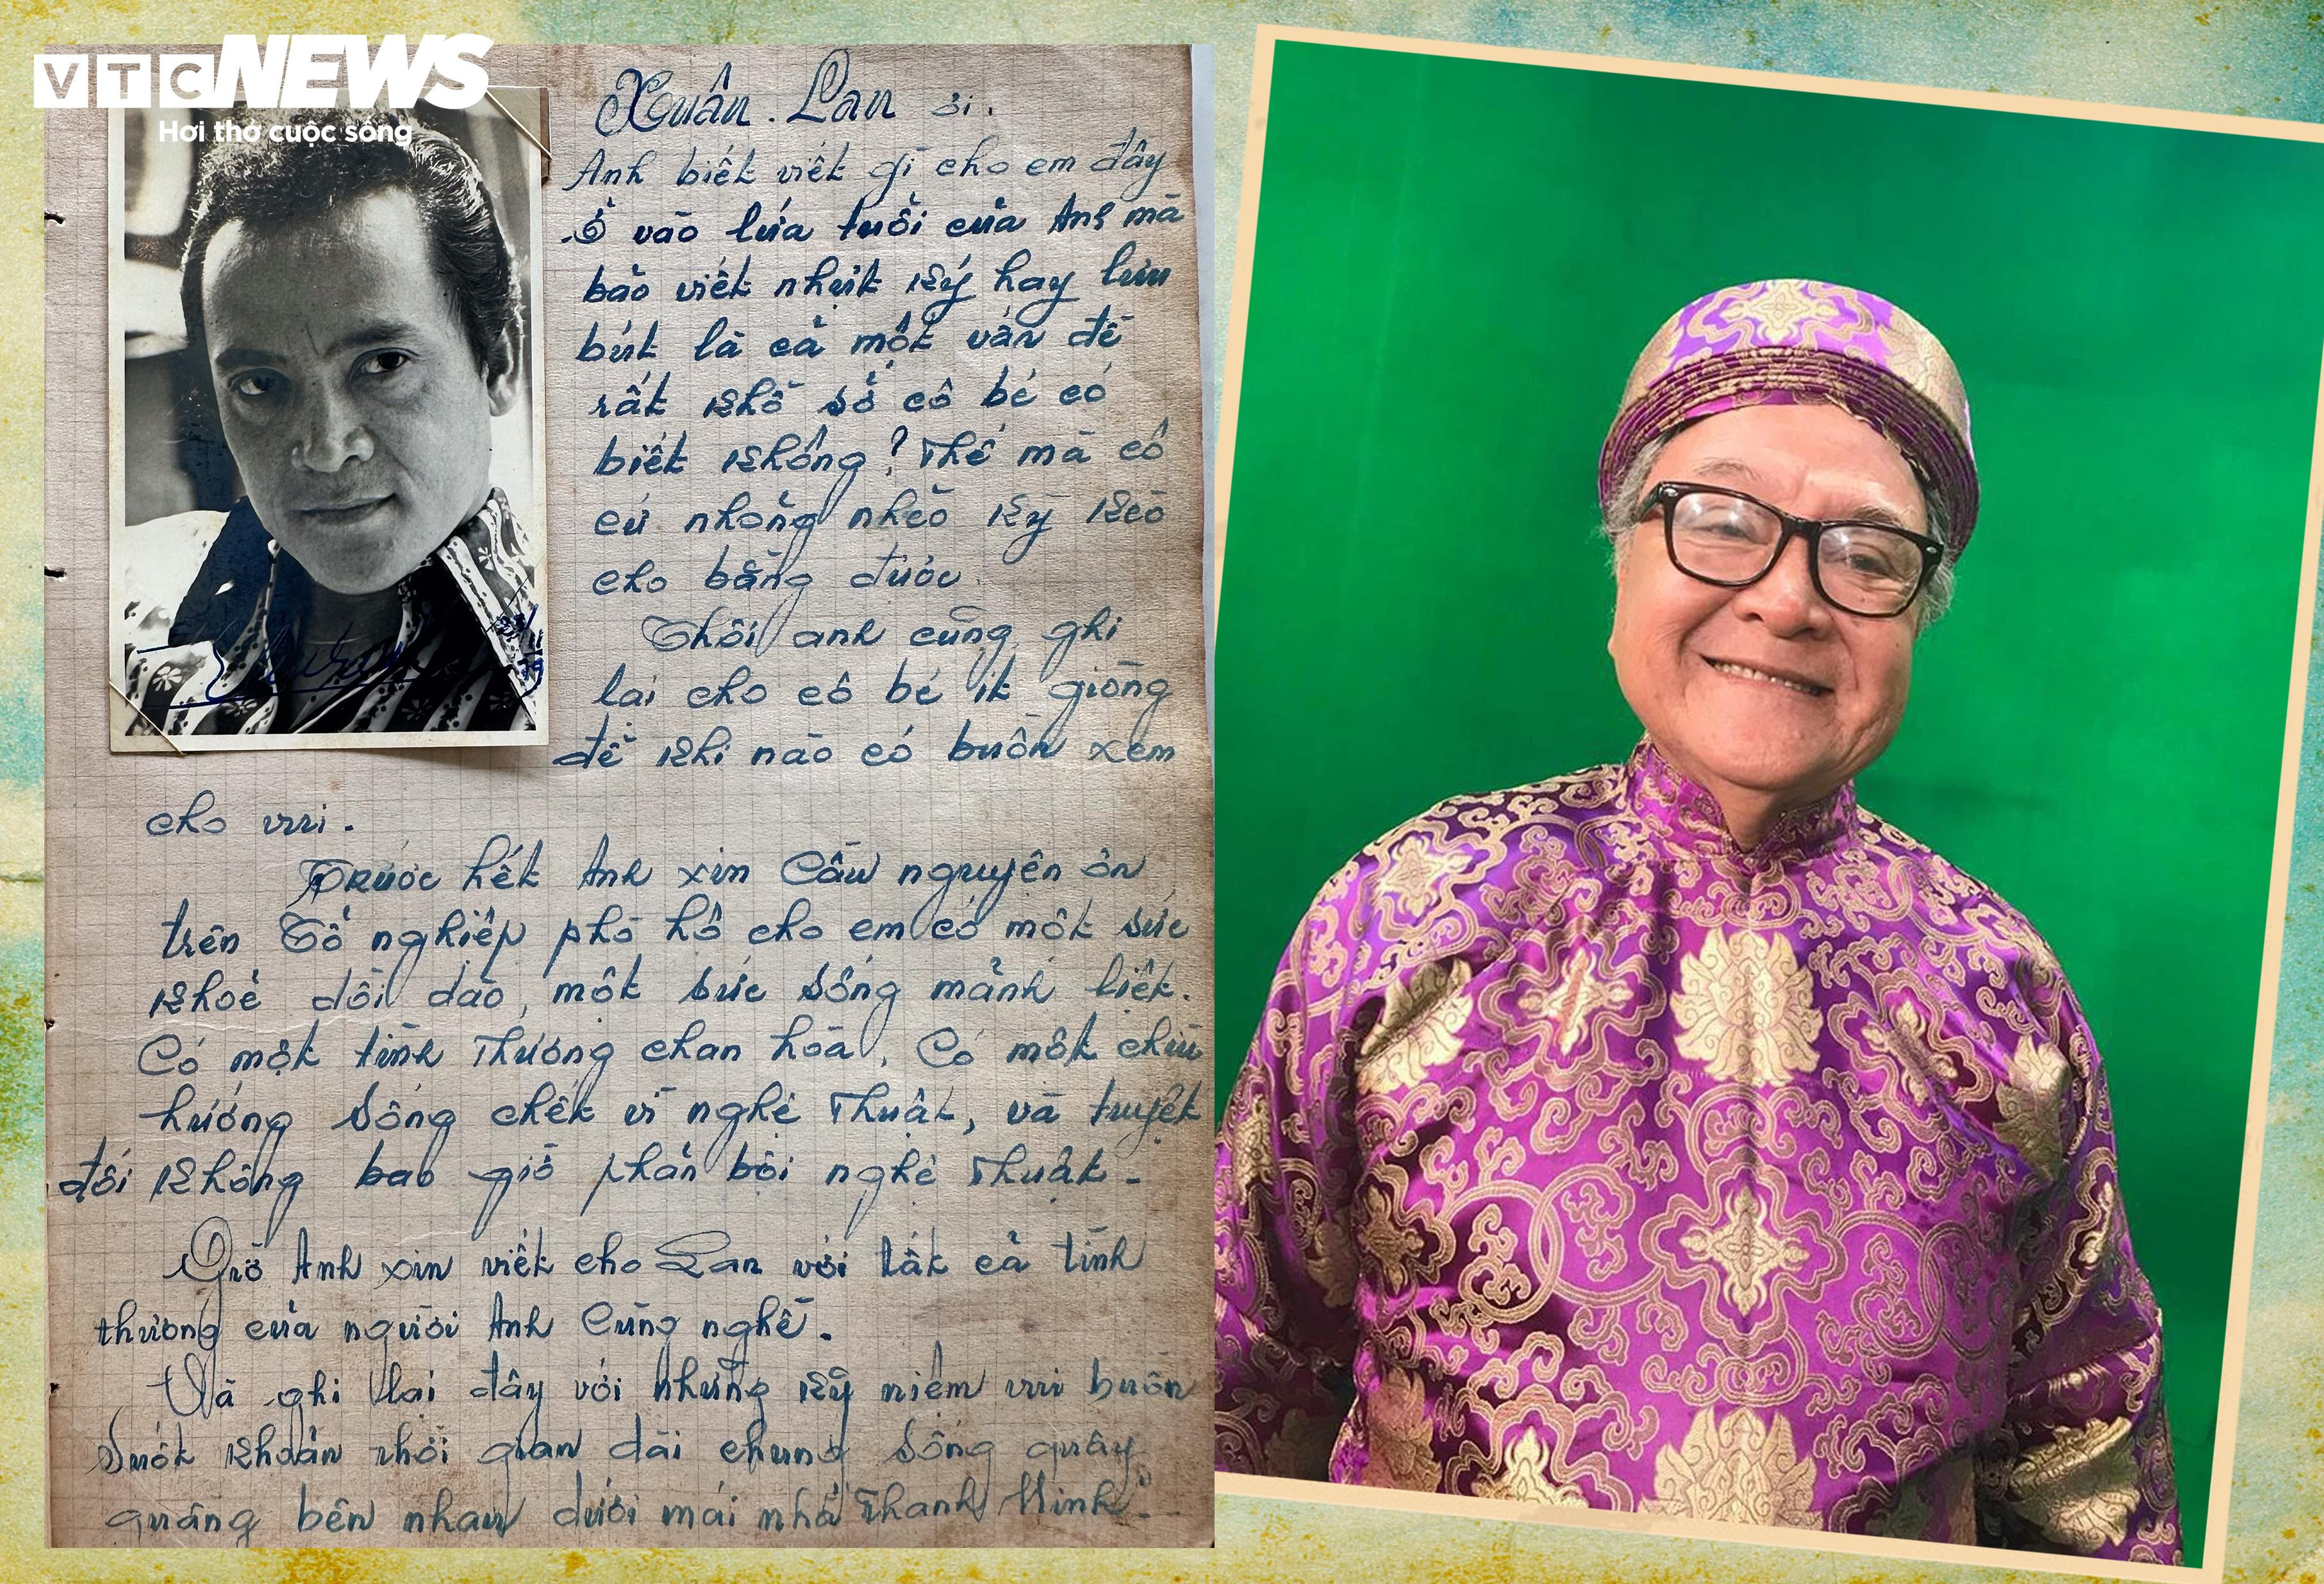 VTC NEWS
Hơi thở cuộc sống
Xuân . Lan ơi .
Anh biết viết gì cho em đây
Ở vào lứa tuổi của Anh mà
bảo viết nhựt ký hay lưu
bút là cả một vấn đề
rất khổ sở cô bé có
biết không ? Thế mà cô
cứ nhõng nhẽo kỳ kèo
cho bằng được .
Thôi anh cũng ghi
lại cho cô bé ít giòng
để khi nào có buồn xem
cho vui .
Trước hết Anh xin Cầu nguyện ơn
trên Tổ nghiệp phò hộ cho em có một sức
khoẻ dồi dào, một sức sống mãnh liệt.
Có một tình thương chan hòa, Có một chiù
hướng sống chết vì nghệ thuật, và tuyệt
đối không bao giờ phản bội nghệ thuật -
Giờ Anh xin viết cho Lan với tất cả tình
thương của người Anh Cùng nghề .
Và ghi lại đây với những kỷ niệm vui buồn
suốt khoản thời gian dài chung sống quây
quâng bên nhau dưới mái nhà Thanh Minh -